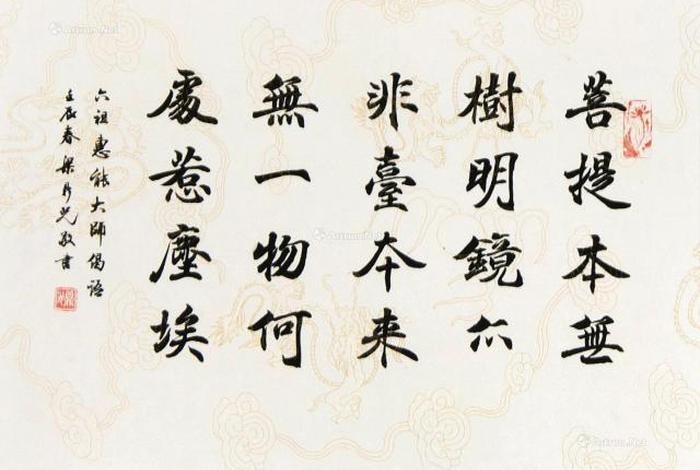 菩提本無
樹明鏡亦
非臺本来
無一物何
處惹塵埃
六祖惠能大師偈語
壬辰春梁敬書
Artron.Net
Artron.Net
Artron.Net
Artron.Net